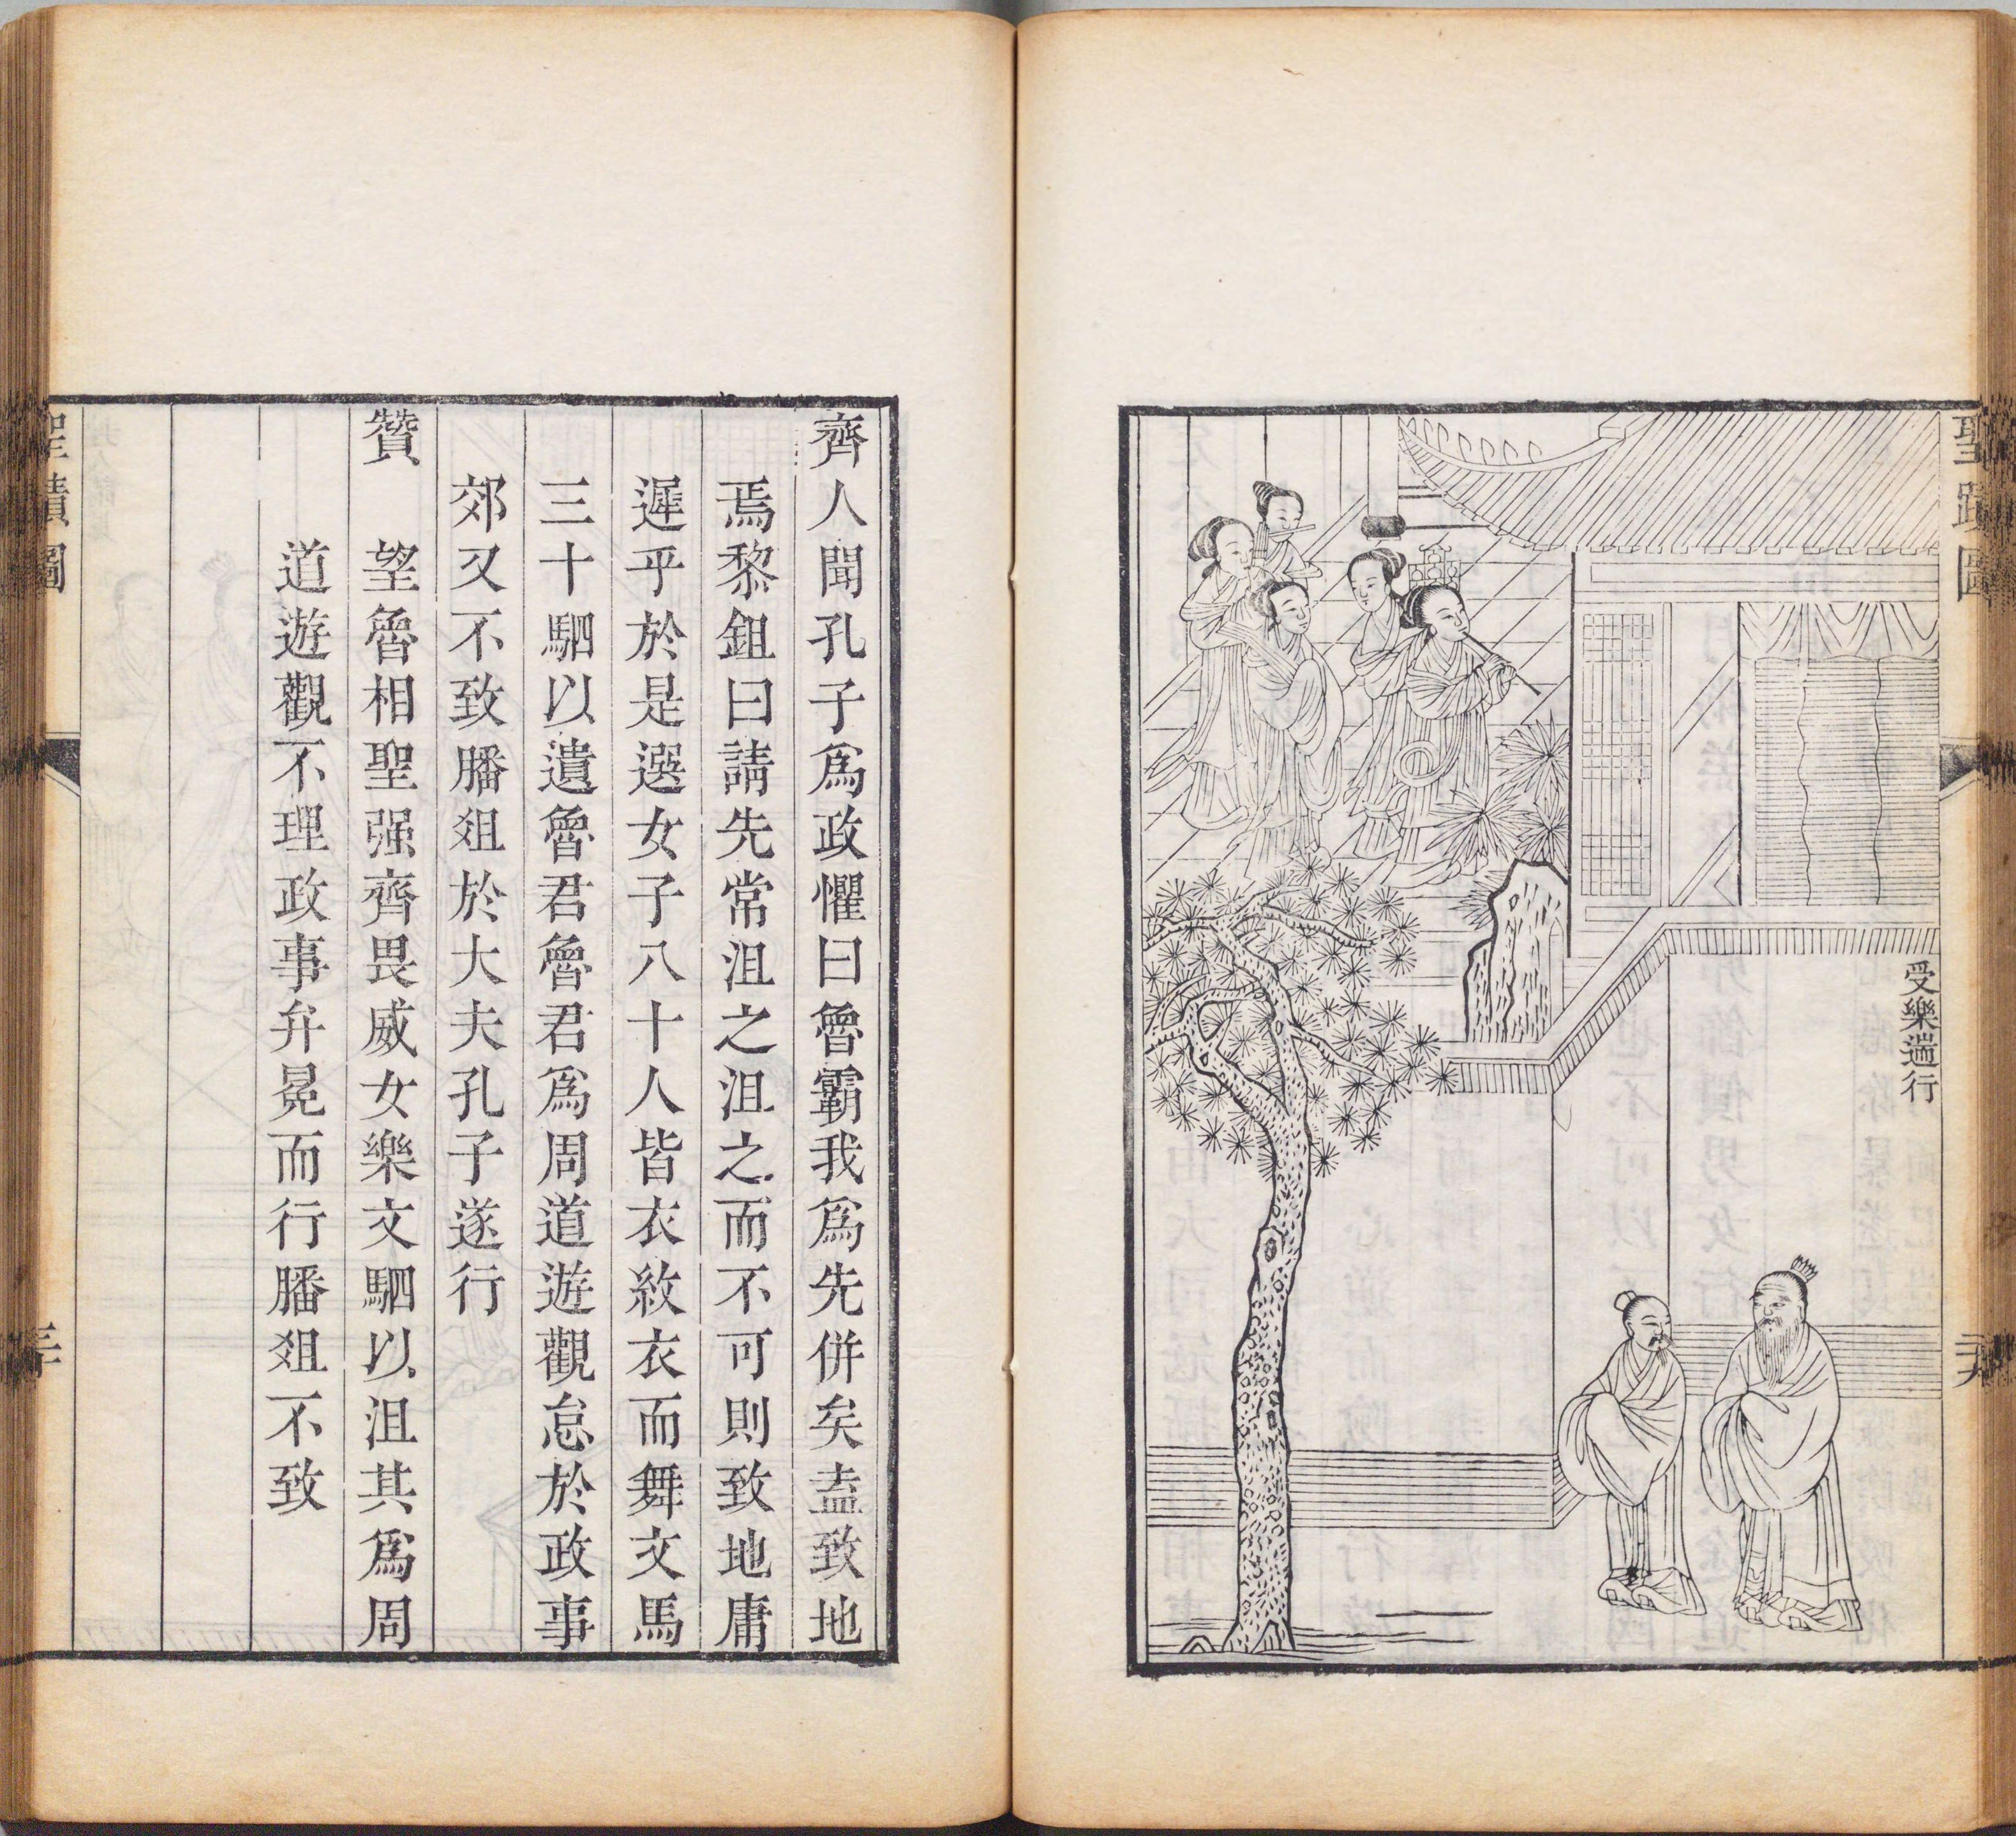 聖蹟圖
二九
受樂遄行
齊人聞孔子爲政懼曰魯霸我爲先併矣盍致地
焉黎鉏曰請先常沮之沮之而不可則致地庸
遲乎於是選女子八十人皆衣紋衣而舞文馬
三十駟以遺魯君魯君爲周道遊觀怠於政事
郊又不致膰俎於大夫孔子遂行
贊　望魯相聖强齊畏威女樂文駟以沮其爲周
道遊觀不理政事弁冕而行膰俎不致
聖蹟圖
三十